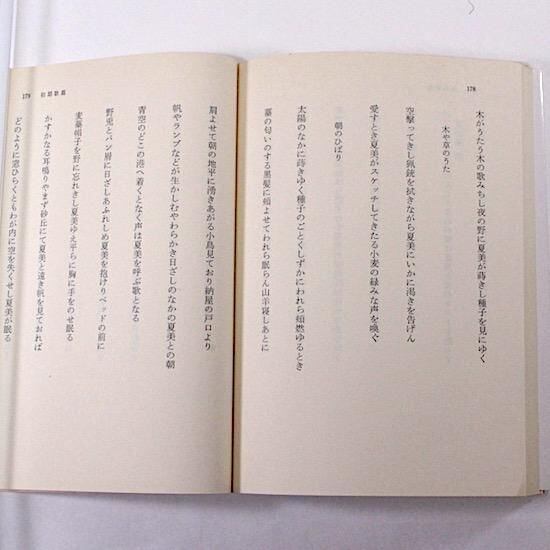 178
木がうたう木の歌みちし夜の野に夏美が蒔きし種子を見にゆく
木や草のうた
空撃ってきし猟銃を拭きながら夏美にいかに渇きを告げん
愛すとき夏美がスケッチしてきたる小麦の緑みな声を喚ぐ
朝のひばり
太陽のなかに蒔きゆく種子のごとくしずかにわれら頬燃ゆるとき
藁の匂いのする黒髪に頬よせてわれら眠らん山羊寝しあとに
179 初期歌篇
肩よせて朝の地平に湧きあがる小鳥見ており納屋の戸口より
帆やランプなどが生かしむやわらかき日ざしのなかの夏美との朝
青空のどこの港へ着くとなく声は夏美を呼ぶ歌となる
野兎とパン屑に日ざしあふれしめ夏美を抱けりベッドの前に
麦藁帽子を野に忘れきし夏美ゆえ平らに胸に手をのせ眠る
かすかなる耳鳴りやまず砂丘にて夏美と遠き帆を見ておれば
どのように窓ひらくともわが内に空を失くせし夏美が眠る